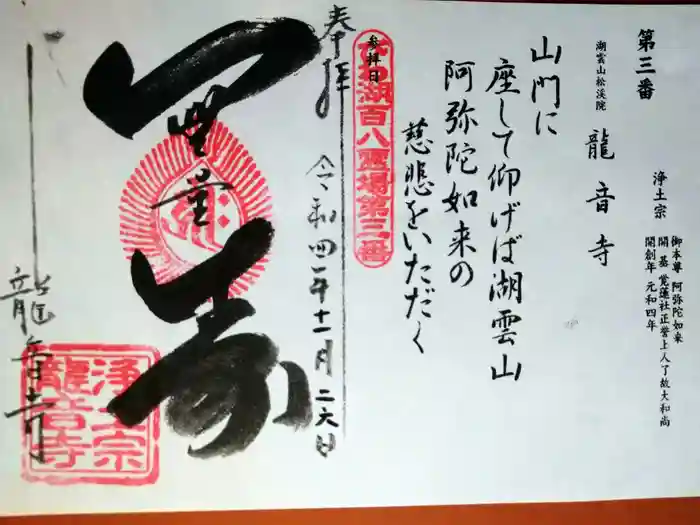 第三番
湖雲山松渓院
龍音寺
浄土宗
御本尊 阿弥陀如来
開基 覚蓮社正誉上人了故大和尚
開創年 元和四年
山門に
座して仰げば湖雲山
阿弥陀如来の
慈悲をいただく
参拝日
湖百八霊場第三番
奉拝
令和四年十一月二六日
無量寿
龍音寺
浄土宗
龍音寺